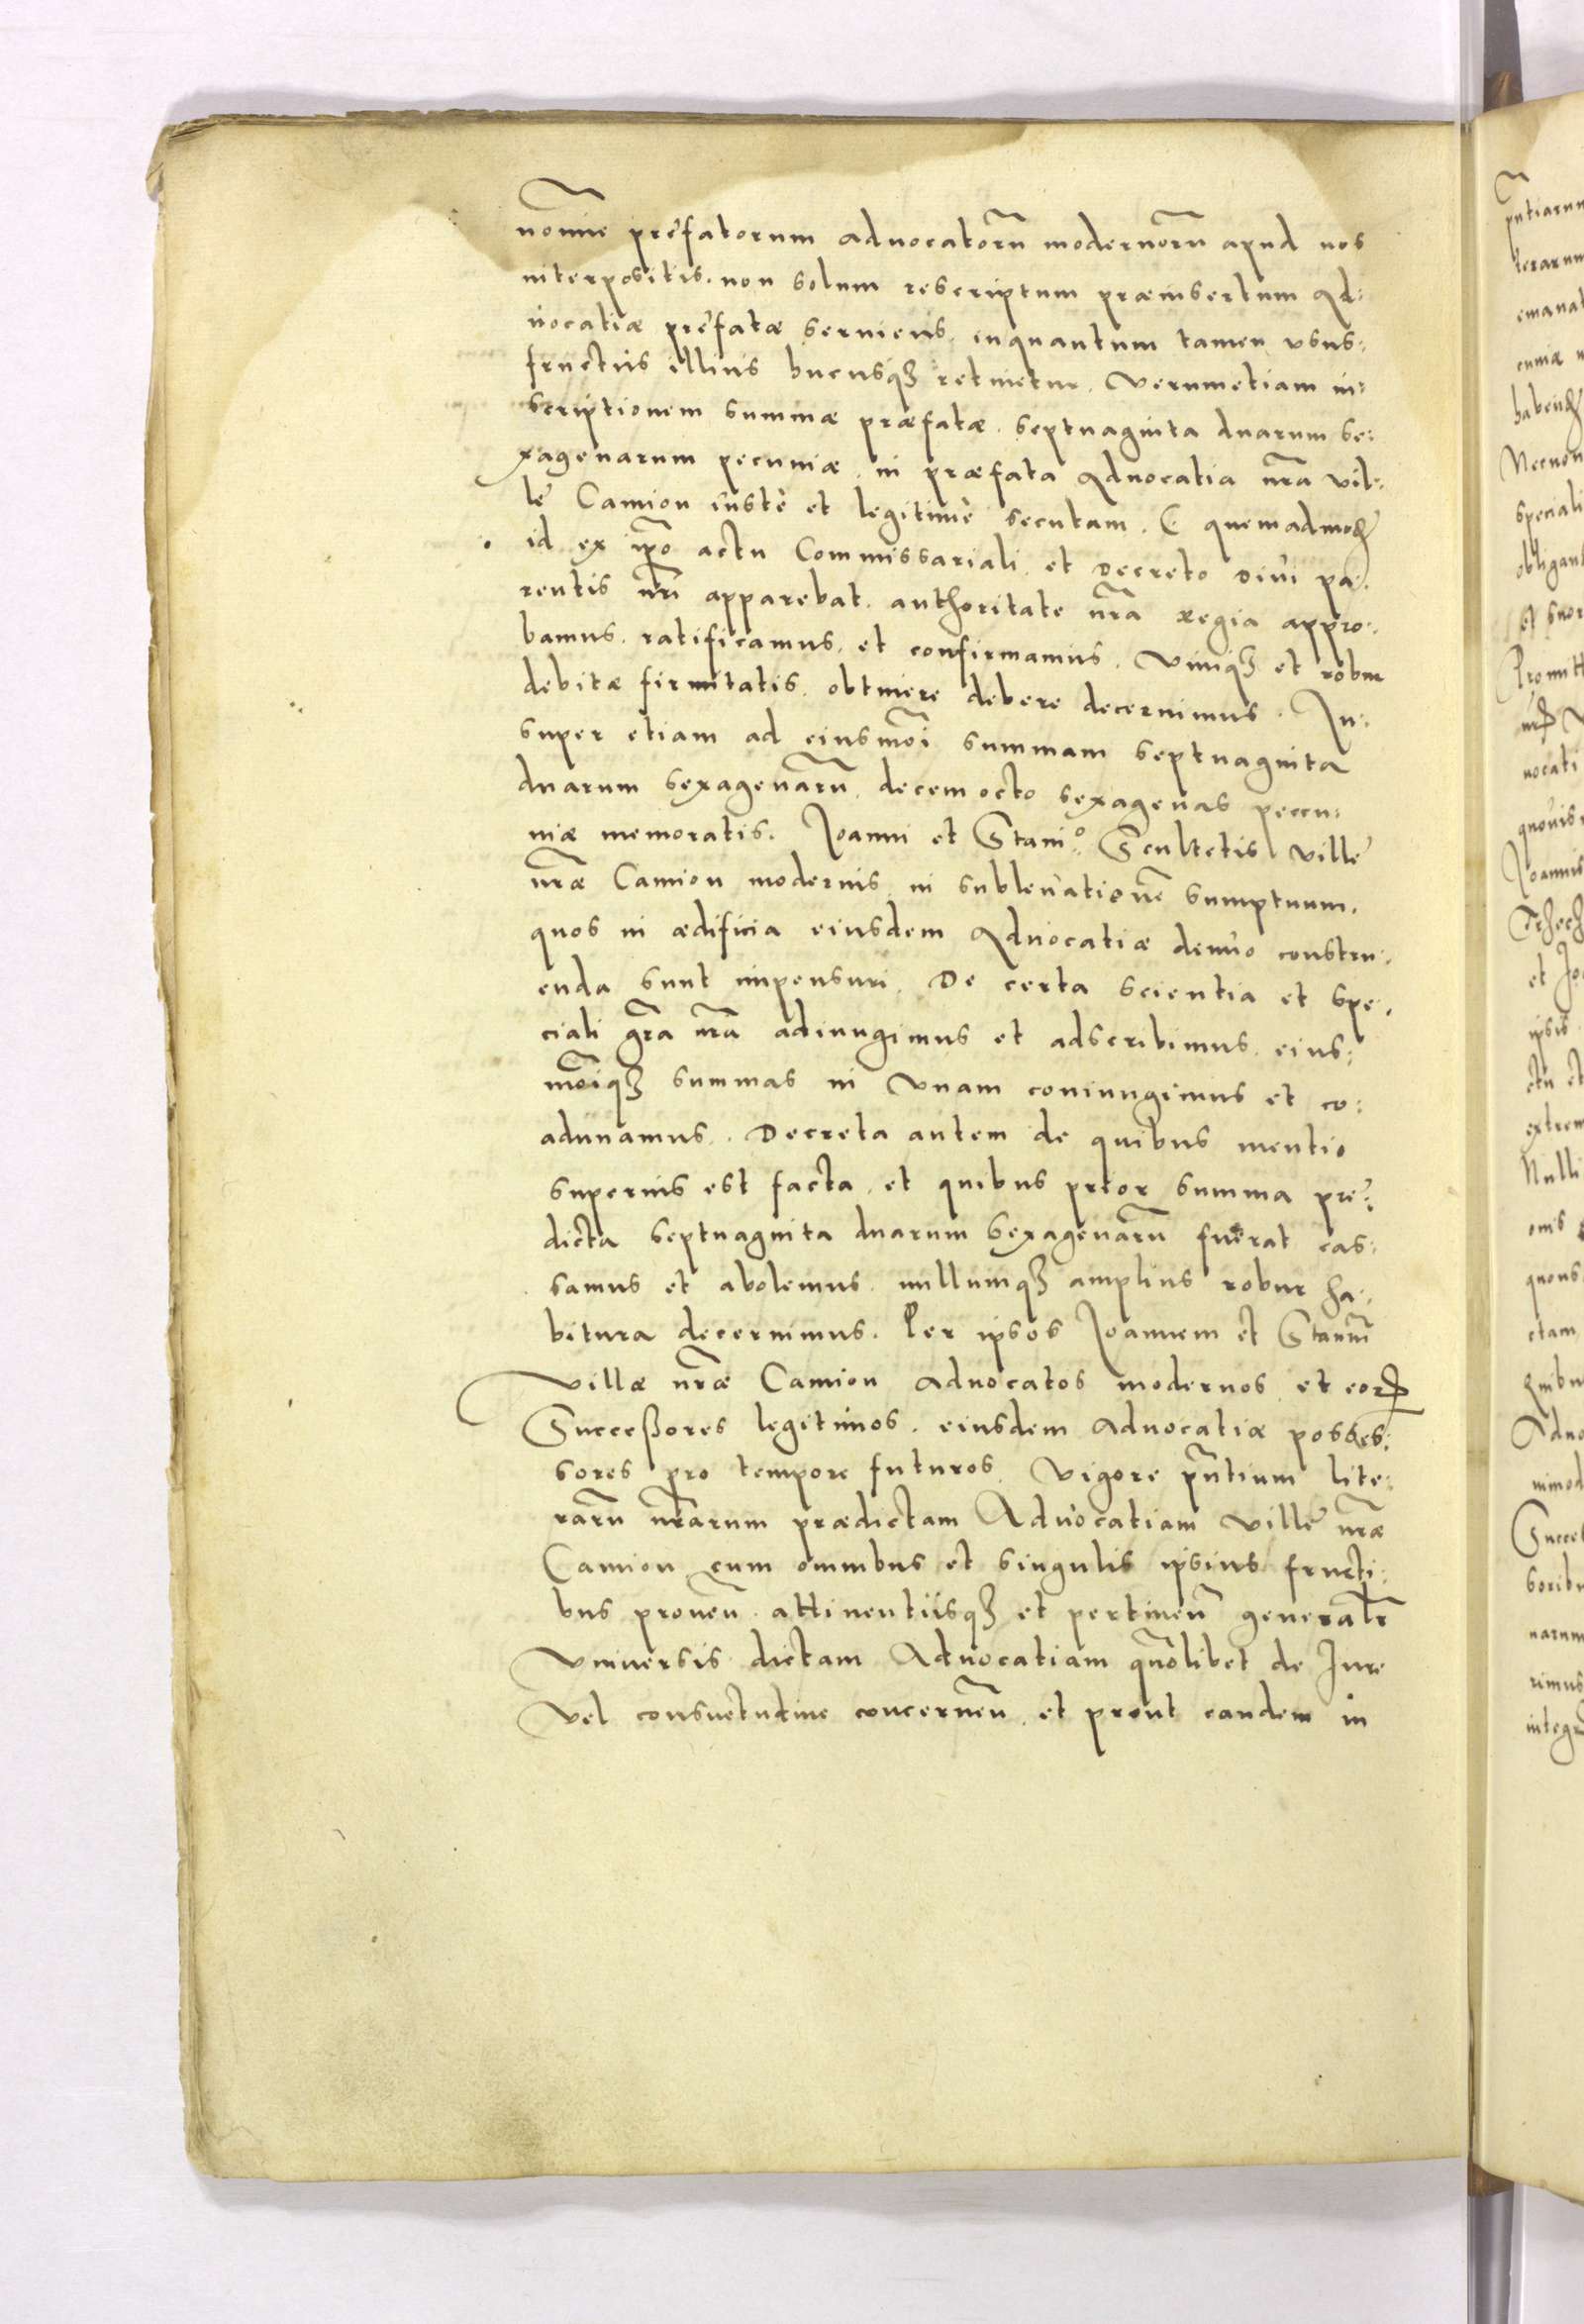 noĩe prefatorum advocatorũ modernorũ apud nos
interpositis. non solum rescriptum præinsertum Ad:
vocatiæ prefatæ serviens, inquantum tamen usus:
fructus illius hucusqꝫ retinetur, verumetiam in:
scriptionem summæ præfatæ. septuaginta duarum se:
xagenarum pecuniæ, in præfata Advocatia nrã vil:
le Camion iuste et legitime secutam. C quemadmoꝝ
id ex ipõ actu Commissariali, et Decreto Divi pa:
rentis nrĩ apparebat. authoritate nrã regia appro:
bamus. ratificamus, et confirmamus, vimqꝫ et robur
debitæ firmitatis. obtinere debere decernimus. In:
super etiam ad eiusmõi summam septuaginta
duarum sexagenarũ, decem octo sexagenas pecu:
niæ memoratis. Joanni et Stani.º Scultetis ville
nrãe Camion modernis, in sublevationẽ sumptuum,
quos in ædificia eiusdem Advocatiæ denuo constru:
enda sunt impensuri. De certa scientia et spe:
ciali grã nrã adiungimus et adscribimus. eius:
mõiqꝫ summas in unam coniungimus et co:
adunamus. Decreta autem de quibus mentio
superius est facta, et quibus prior summa pre:
dicta septuaginta duarum sexagenarũ fuerat cas:
samus et abolemus. nullumqꝫ amplius robur ha:
bitura decernimus. Per ipsos Joannem et Stanũ
villæ nrãe Camion Advocatos modernos, et eorꝝ
Succeßores legitimos. eiusdem Advocatiæ posses:
sores pro tempore futuros. Vigore pñtium lite:
rarũ nrãrum prædictam Advocatiam ville nrãe
Camion cum omnibus et singulis ipsius fructi:
bus provẽn. attinentiisqꝫ et pertineñ generalr̃
universis dictam Advocatiam quõlibet de Jure
vel consuetudine concerneñ. et prout eandem in